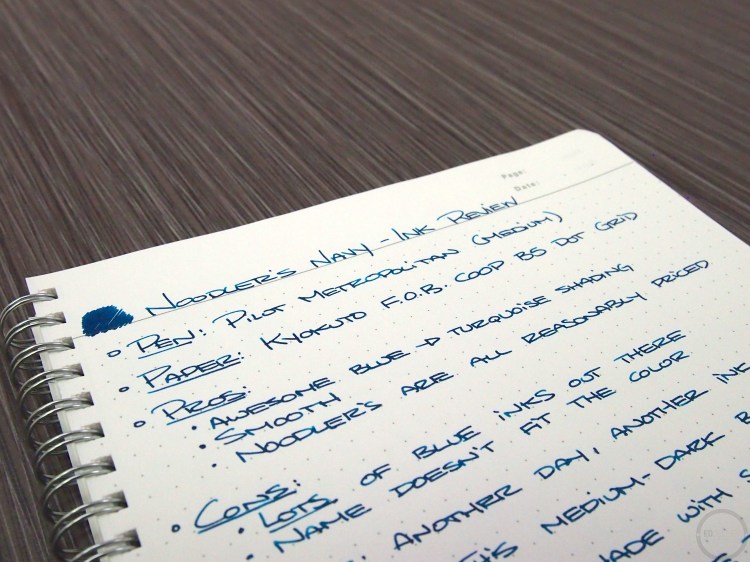 Page:
Date:
NOODLER'S NAVY - INK REVIEW
PEN: PILOT METROPOLITAN (MEDIUM)
PAPER: KYOKUTO F.O.B. COOP B5 DOT GRID
PROS:
• AWESOME BLUE → TURQUOISE SHADING
• SMOOTH
• NOODLER'S ARE ALL REASONABLY PRICED
CONS:
• LOTS OF BLUE INKS OUT THERE
• NAME DOESN'T FIT THE COLOR
ANOTHER DAY, ANOTHER INK
MEDIUM-DARK
WITH
ED